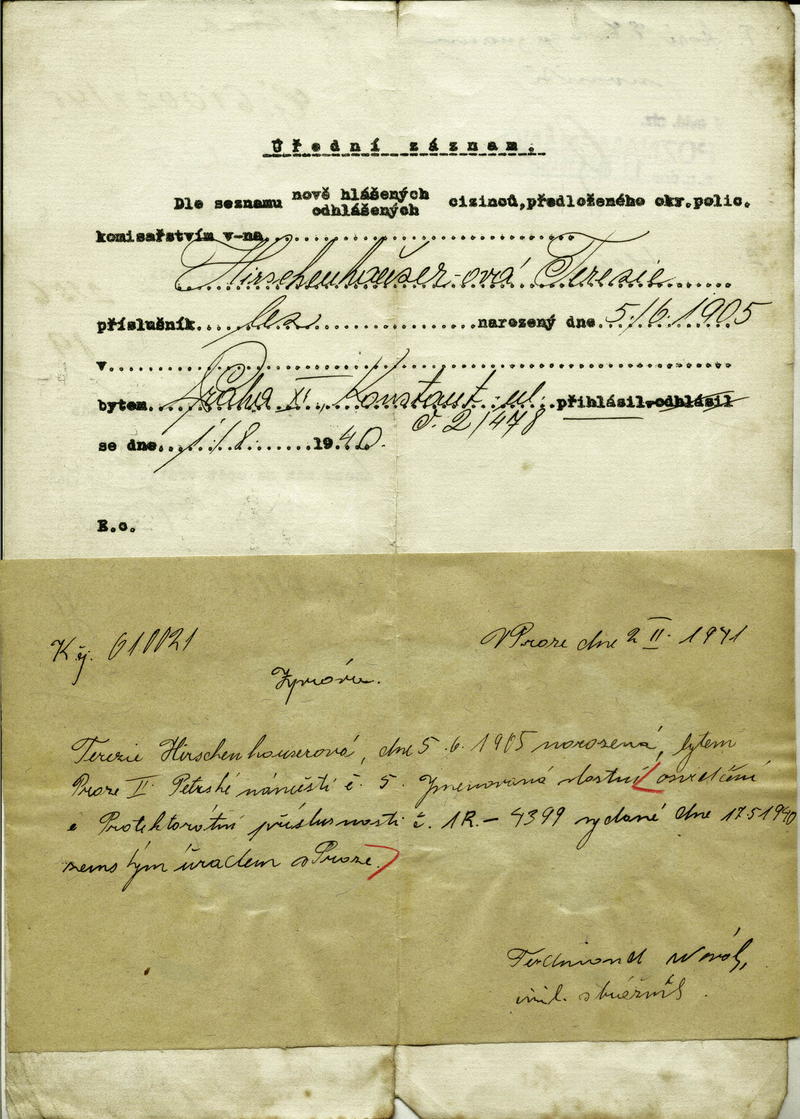 Úřední záznam.
Dle seznamu nově hlášených odhlášených cizinců,předloženého okr.polic.
komisařstvím v-na
Hirschenhäuser-ová Terezie
příslušník bez narozený dne 5./6. 1905
v
bytem Praha XI, Konstant. ul. přihlásil-odhlásil
č. 2/478
se dne 1./8. 1940.
E.o.
K čj. 610021
V Praze dne 2 II. 1941
Zpráva.
Terezie Hirschenhauserová, dne 5.6.1905 narozená, bytem
Praze II Petrské náměstí č. 5. Jmenovaná vlastní osvědčení
o Protektorátní příslusnosti č. 1R.-4399 vydané dne 17 5 1940
zemským úradem v Praze.
Ferdinand